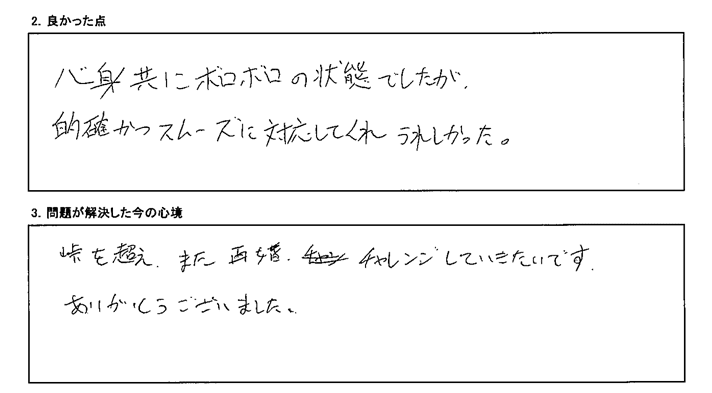 2. 良かった点
心身共にボロボロの状態でしたが、
的確かつスムーズに対応してくれ うれしかった。
3. 問題が解決した今の心境
峠を超え、また再婚、チャレンジしていきたいです。
ありがとうございました。